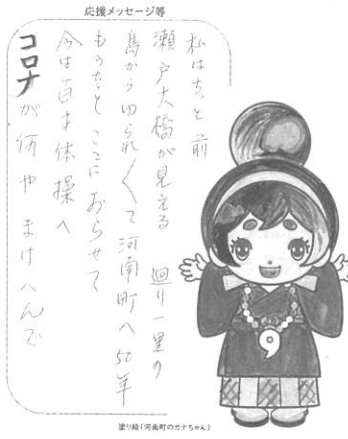 応援メッセージ等
私はずっと前
瀬戸大橋が見える 廻り一里の
島からゆられ〱て河南町へ50年
もうずっとここにおらせて
今は百才体操へ
コロナが何やまけへんで
塗り絵(河南町のカナちゃん)